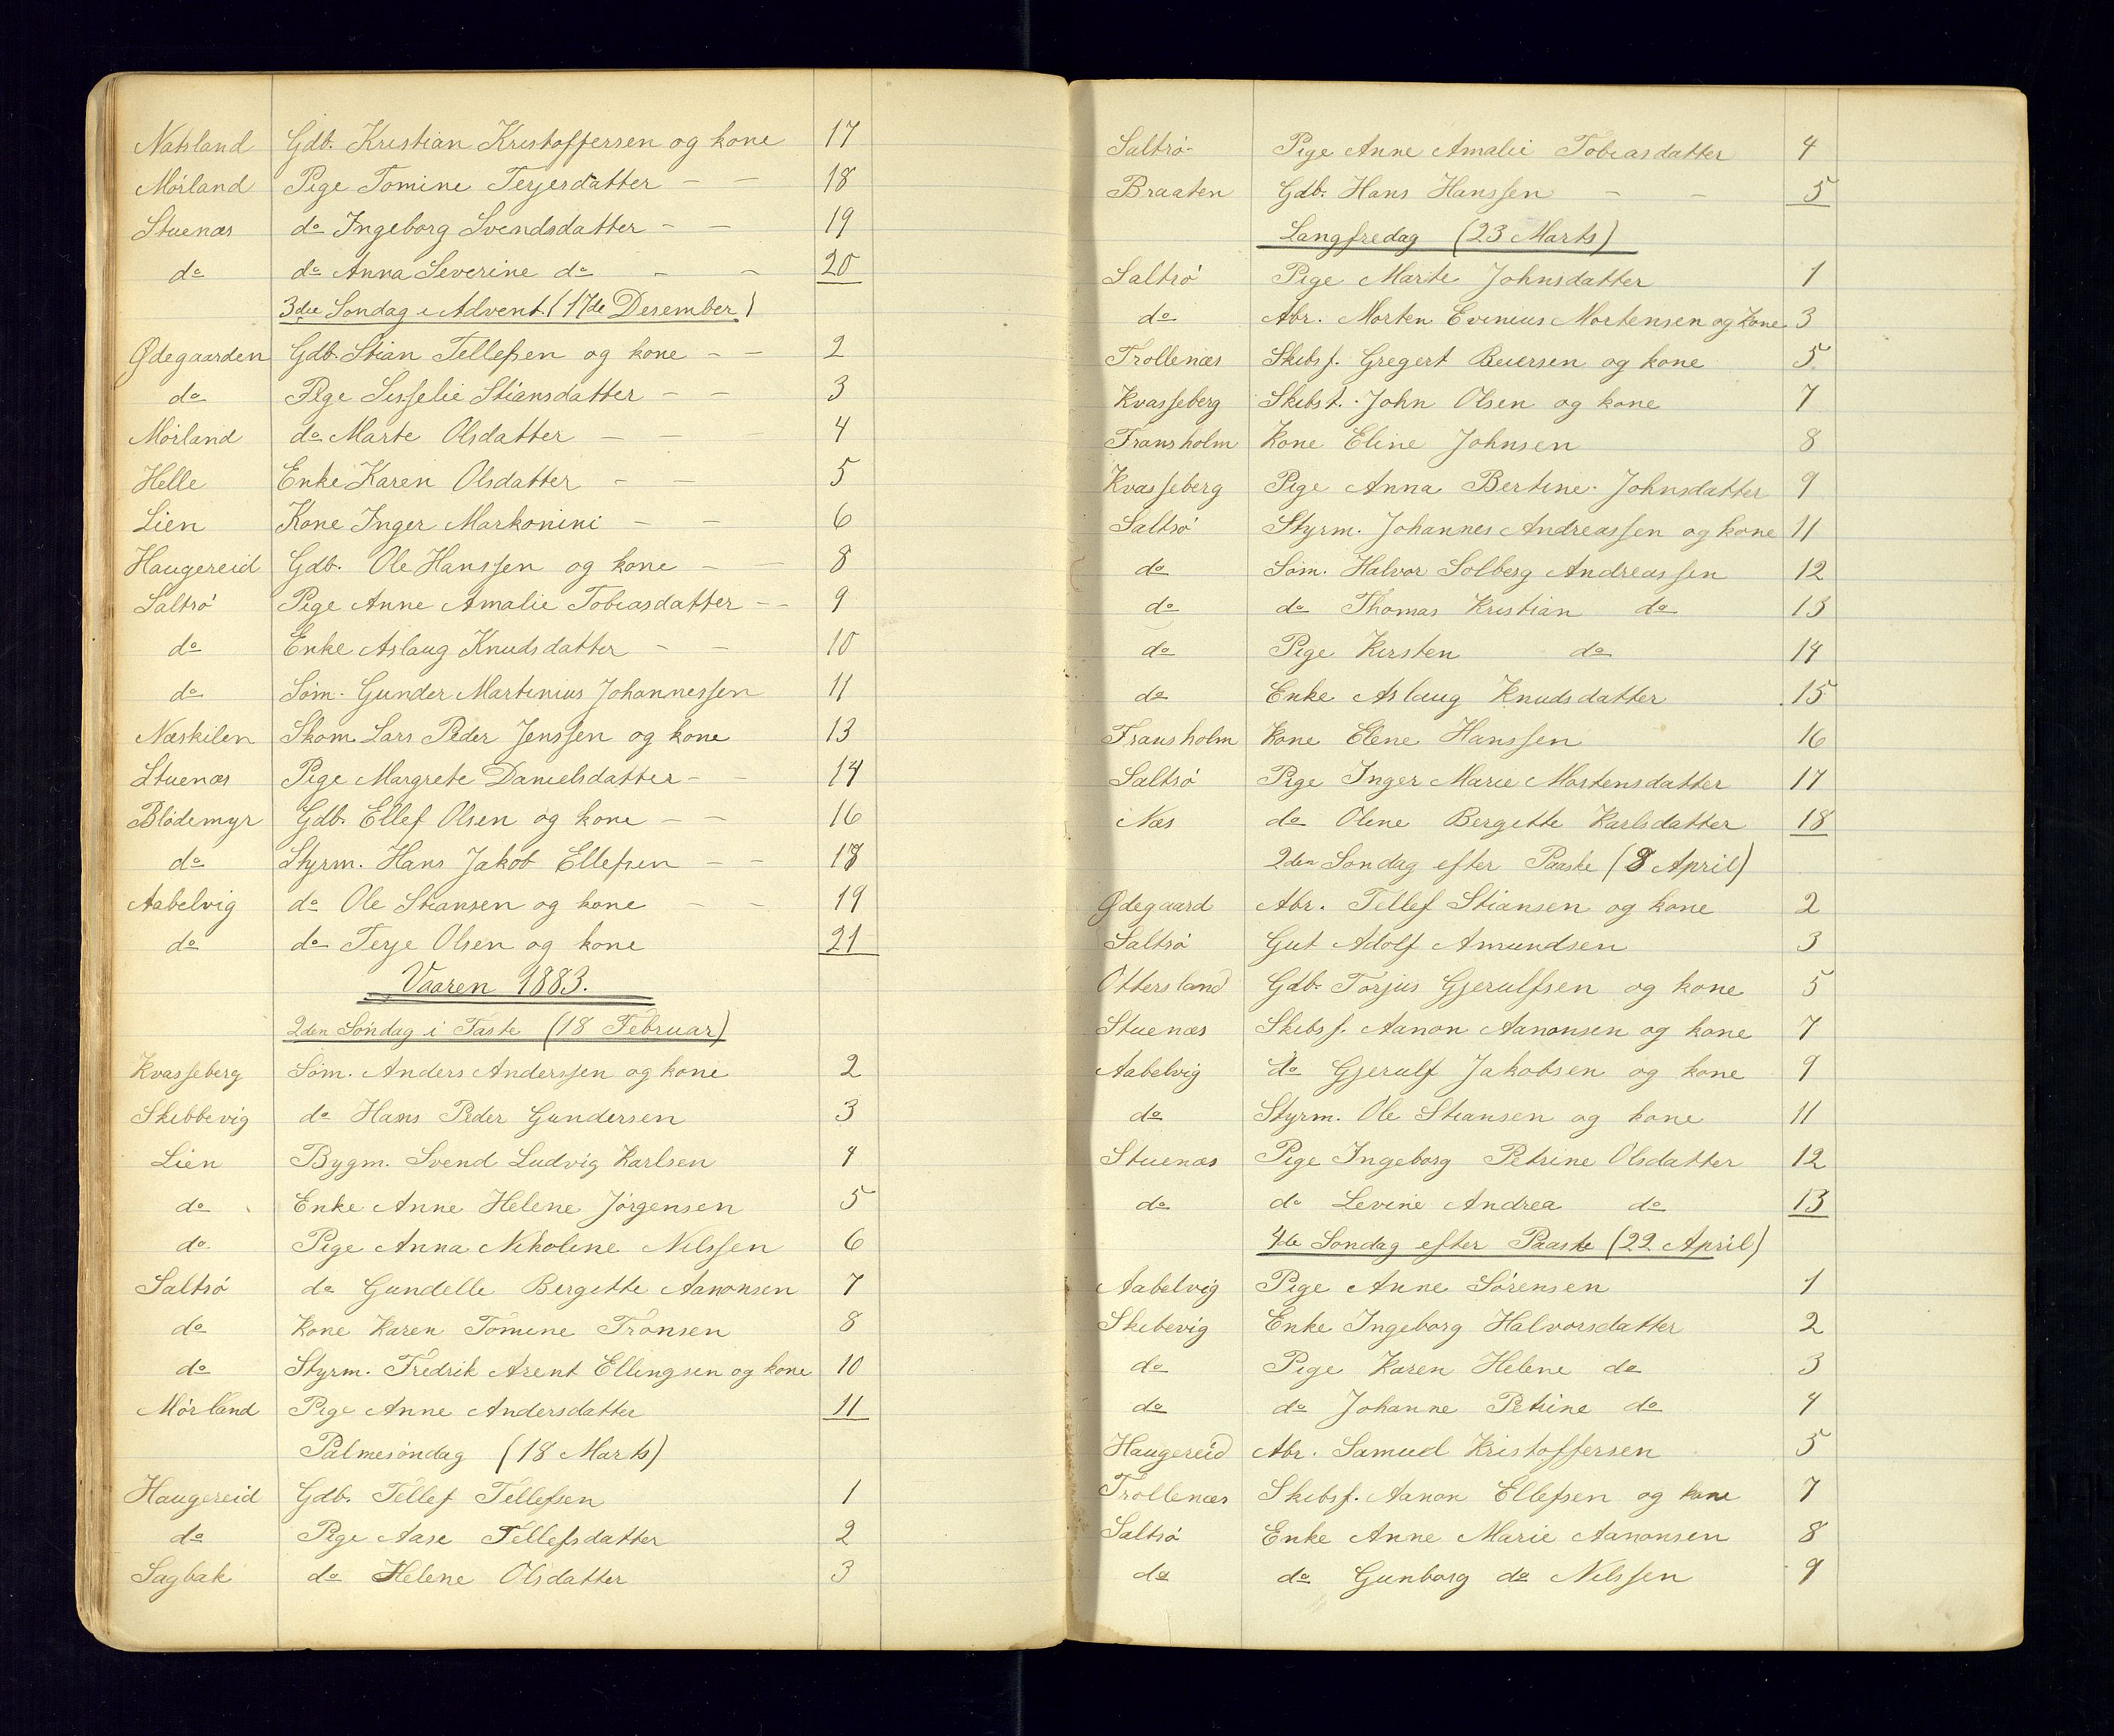 Natsland Gdb. Kristian Kristoffersen og kone 17
Mörland Pige Tomine Terjersdatter — — 18
Stuenæs do Ingeborg Svendsdatter — — 19
do do Anna Severine do — — 20
3die Söndag i Advent. (17de Desember)
Ødegaarden Gdb. Stian Tellefsen og kone — — 2
do Pige Sisselie Stiansdatter — — 3
Mörland do Marte Olsdatter — — — 4
Helle Enke Karen Olsdatter — — 5
Lien Kone Inger Markonini — — 6
Haugereid Gdb. Ole Hanssen og kone — — 8
Saltrö Pige Anne Amalie Tobiasdatter — — 9
do Enke Aslaug Knudsdatter — — 10
do Söm. Gunder Martinius Johannessen 11
Næskilen Skom. Lars Peder Jenssen og kone 13
Stuenæs Pige Margrete Danielsdatter — — 14
Blödemyr Gdb. Ellef Olsen og kone — — 16
do Styrm. Hans Jakob Ellefsen — — 17
Aabelvig do Ole Stiansen og kone — — 19
do do Terje Olsen og kone 21
Vaaren 1883.
2den Söndag i Faste (18 Februar)
Kvasseberg Söm. Anders Anderssen og kone 2
Skibbevig do Hans Peder Gundersen 3
Lien Bygm. Svend Ludvig Karlsen 4
do Enke Anne Helene Jörgensen 5
do Pige Anna Nikoline Nilssen 6
Saltrö do Gundelle Bergitte Aanonsen 7
do Kone Karen Tomine Tronsen 8
do Styrm. Fredrik Arent Ellingsen og kone 10
Mörland Pige Anne Andersdatter 11
Palmesöndag (18 Marts)
Haugereid Gdb. Tellef Tellefsen 1
do Pige Aase Tellefsdatter 2
Sagbak do Helene Olsdatter 3
Saltrö Pige Anne Amalie Tobiasdatter 4
Braaten Gdb. Hans Hanssen — — 5
Langfredag (23 Marts)
Saltrö Pige Marte Johnsdatter 1
do Abr. Morten Evinius Mortensen og Kone 3
Trollenæs Skibsf. Gregert Reiersen og kone 5
Kvasseberg Skibst. John Olsen og kone 7
Fransholm Kone Eline Johnsen 8
Kvasseberg Pige Anna Bertine Johnsdatter 9
Saltrö Styrm. Johannes Andreassen og kone 11
do Söm. Halvor Solberg Andreassen 12
do do Thomas Kristian do 13
do Pige Kirsten do 14
do Enke Aslaug Knudsdatter 15
Fransholm Kone Elene Hanssen 16
Saltrö Pige Inger Marie Mortensdatter 17
Næs do Oline Bergitte Karlsdatter 18
2den Söndag efter Paaske (8 April)
Ødegaard Abr. Tellef Stiansen og kone 2
Saltrö Gut Adolf Amundsen 3
Ottersland Gdb. Torjus Gjerulfsen og kone 5
Stuenæs Skibsf. Aanon Aanonsen og kone 7
Aabelvig do Gjerulf Jakobsen og kone 9
do Styrm. Ole Stiansen og kone 11
Stuenæs Pige Ingeborg Petrine Olsdatter 12
do do Levine Andrea do 13
4de Söndag efter Paaske (22 April)
Aabelvig Pige Anne Sörensen 1
Skibevig Enke Ingeborg Halvorsdatter 2
do Pige Karen Helene do 3
do do Johanne Petrine do 4
Haugereid Abr. Samuel Kristoffersen 5
Trollenæs Skibsf. Aanon Ellefsen og kone 7
Saltrö Enke Anne Marie Aanonsen 8
do do Gunborg do Nilssen 9